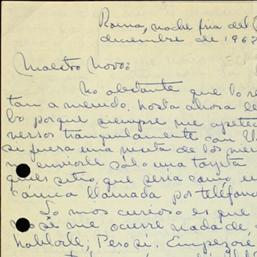 Roma, noche fría del
diciembre de 196
Maestro Novo:
No obstante que lo re
a menudo, hasta ahora
bo porque siempre me apetec
versos tranquilamente con U
si fuera una
no enviarle sólo una tarjeta
que sería como u
llamada por teléfono
Lo más curioso es que
no sé me ocurre nada de
hablarle; Pero sí. Empezaré